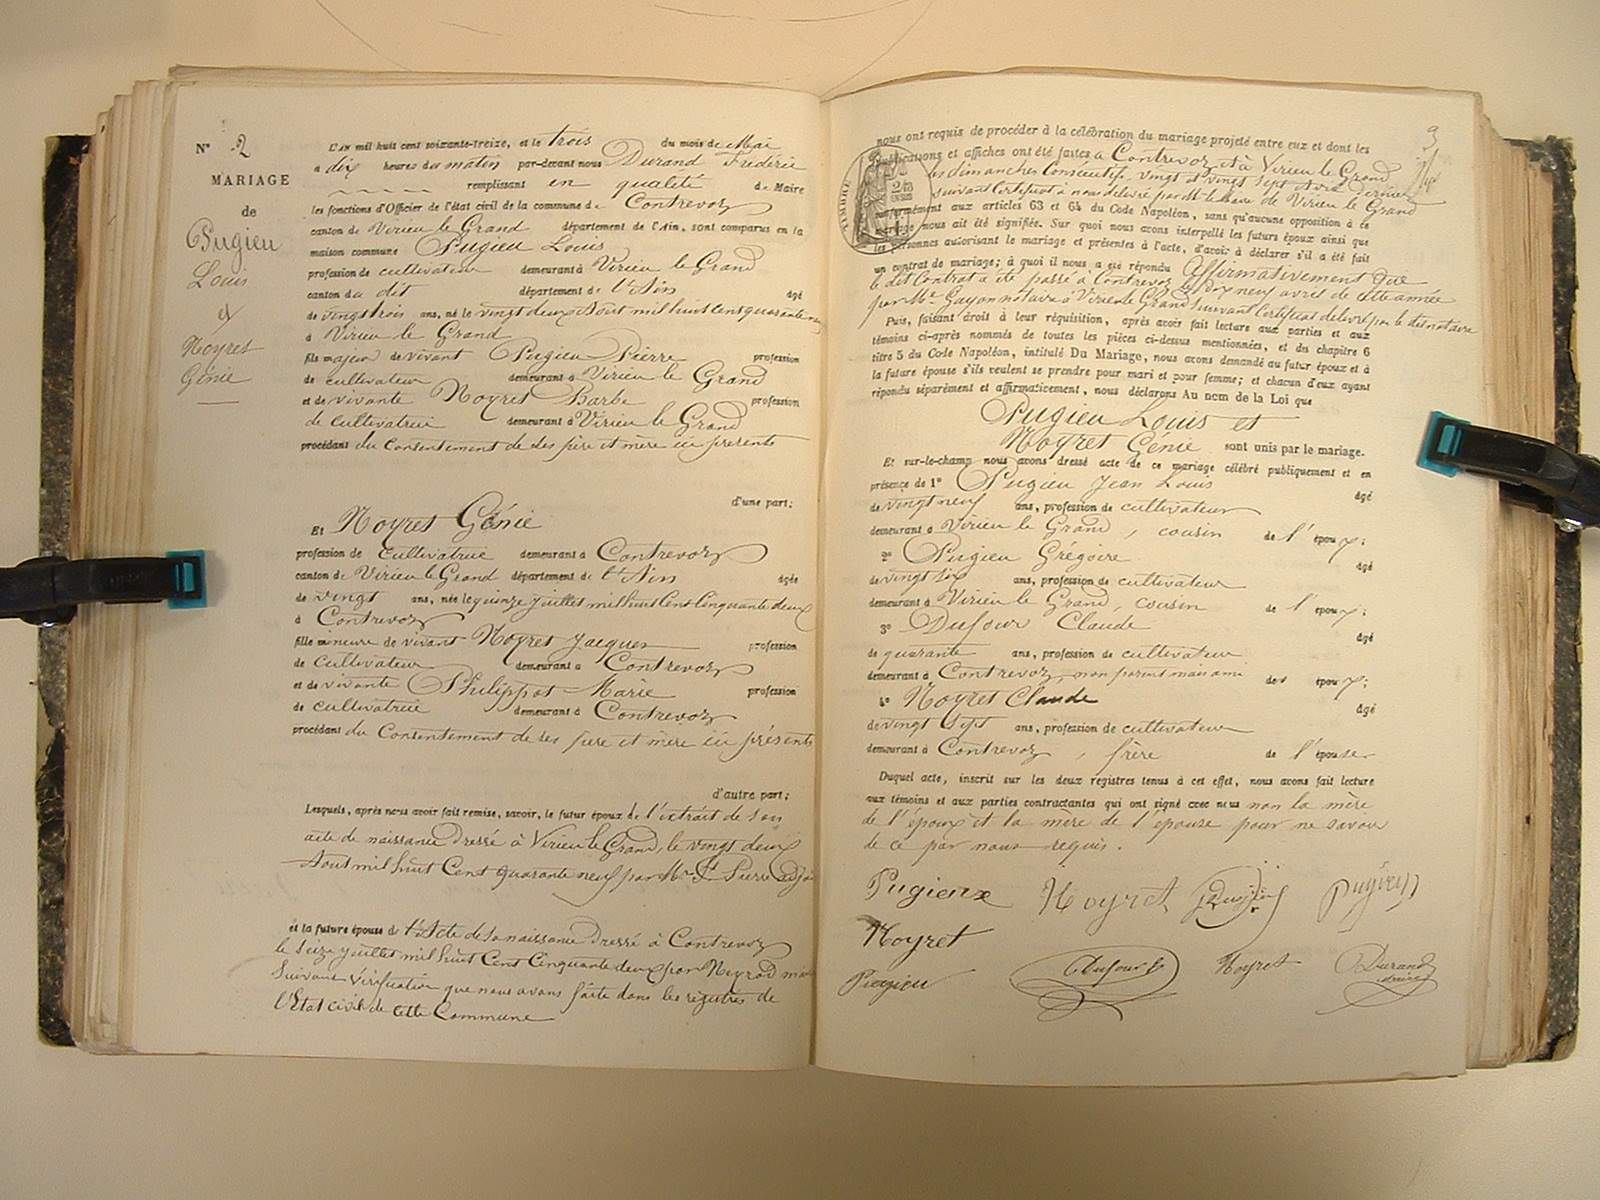 N° 2
MARIAGE
de
Pugieu
Louis
et
Noyret
Génie
L'AN mil huit cent soixante-treize, et le trois du mois de Mai
a dix heures du matin par-devant nous Durand Fréderic
remplissant en qualité de Maire
les fonctions d'Officier de l'état civil de la commune de Contrevoz
canton de Virieu le Grand département de l'Ain, sont comparus en la
maison commune Pugieu Louis
profession de cultivateur demeurant à Virieu le Grand
canton du dit département de l'Ain âgé
de vingt trois ans, né le vingt deux Aout mil huit cent quarante neuf
à Virieu le Grand
fils majeur de vivant Pugieu Pierre profession
de cultivateur demeurant à Virieu le Grand
et de vivante Noyret Barbe profession
de cultivatrice demeurant à Virieu le Grand
procédant du Consentement de ses père et mère ici présents
d'une part;
Et Noyret Génie
profession de cultivatrice demeurant à Contrevoz
canton de Virieu le Grand département de l'Ain âgée
de vingt ans, née le quinze juillet mil huit Cent Cinquante deux
à Contrevoz
fille mineure de vivant Noyret Jacques profession
de cultivateur demeurant à Contrevoz
et de vivante Philippot Marie profession
de cultivatrice demeurant à Contrevoz
procédant du Consentement de ses père et mère ici présents
d'autre part;
Lesquels, après nous avoir fait remise, savoir, le futur époux de l'extrait de son
acte de naissance Dressé à Virieu le Grand, le vingt deux
Aout mil huit Cent quarante neuf par Mr St Pierre adjoint
et la future épouse de l'Acte de sa naissance Dressé à Contrevoz
le seize juillet mil huit Cent Cinquante deux par Neyrod maire
Suivant Vérification que nous avons faite dans les registres de
l'Etat civil de cette Commune
3
nous ont requis de procéder à la célébration du mariage projeté entre eux et dont les
publications et affiches ont été faites à Contrevoz et à Virieu le Grand
les dimanches Consécutifs vingt et vingt sept Avril dernier
suivant Certificat à nous délivré par Mr le Maire de Virieu le Grand
TIMBRE
conformément aux articles 63 et 64 du Code Napoléon, sans qu'aucune opposition à ce
mariage nous ait été signifiée. Sur quoi nous avons interpellé les futurs époux ainsi que
les personnes autorisant le mariage et présentes à l'acte, d'avoir à déclarer s'il a été fait
un contrat de mariage; à quoi il nous a été répondu Affirmativement que
le dit Contrat a été passé à Contrevoz le Dix neuf avril de cette année
par Me Gayon notaire à Virieu le Grand suivant Certificat délivré par le dit notaire
Puis, faisant droit à leur réquisition, après avoir fait lecture aux parties et aux
témoins ci-après nommés de toutes les pièces ci-dessus mentionnées, et du chapitre 6
titre 5 du Code Napoléon, intitulé Du Mariage, nous avons demandé au futur époux et à
la future épouse s'ils veulent se prendre pour mari et pour femme; et chacun d'eux ayant
répondu séparément et affirmativement, nous déclarons Au nom de la Loi que
Pugieu Louis et
Noyret Génie sont unis par le mariage.
Et sur-le-champ nous avons dressé acte de ce mariage célébré publiquement et en
présence de 1° Pugieu Jean Louis âgé
de vingt neuf ans, profession de cultivateur
demeurant à Virieu le Grand, cousin de l'époux;
2° Pugieu Grégoire âgé
de vingt six ans, profession de cultivateur
demeurant à Virieu le Grand, cousin de l'époux;
3° Dufour Claude âgé
de quarante ans, profession de cultivateur
demeurant à Contrevoz, non parent mais ami des époux;
4° Noyret Claude âgé
de vingt sept ans, profession de cultivateur
demeurant à Contrevoz, frère de l'épouse
Duquel acte, inscrit sur les deux registres tenus à cet effet, nous avons fait lecture
aux témoins et aux parties contractantes qui ont signé avec nous non la mère
de l'époux et la mère de l'épouse pour ne savoir
de ce par nous requis.
Pugieux Noyret Pugieu Pugieux
Noyret
Pugieu Dufour Noyret Durand
maire